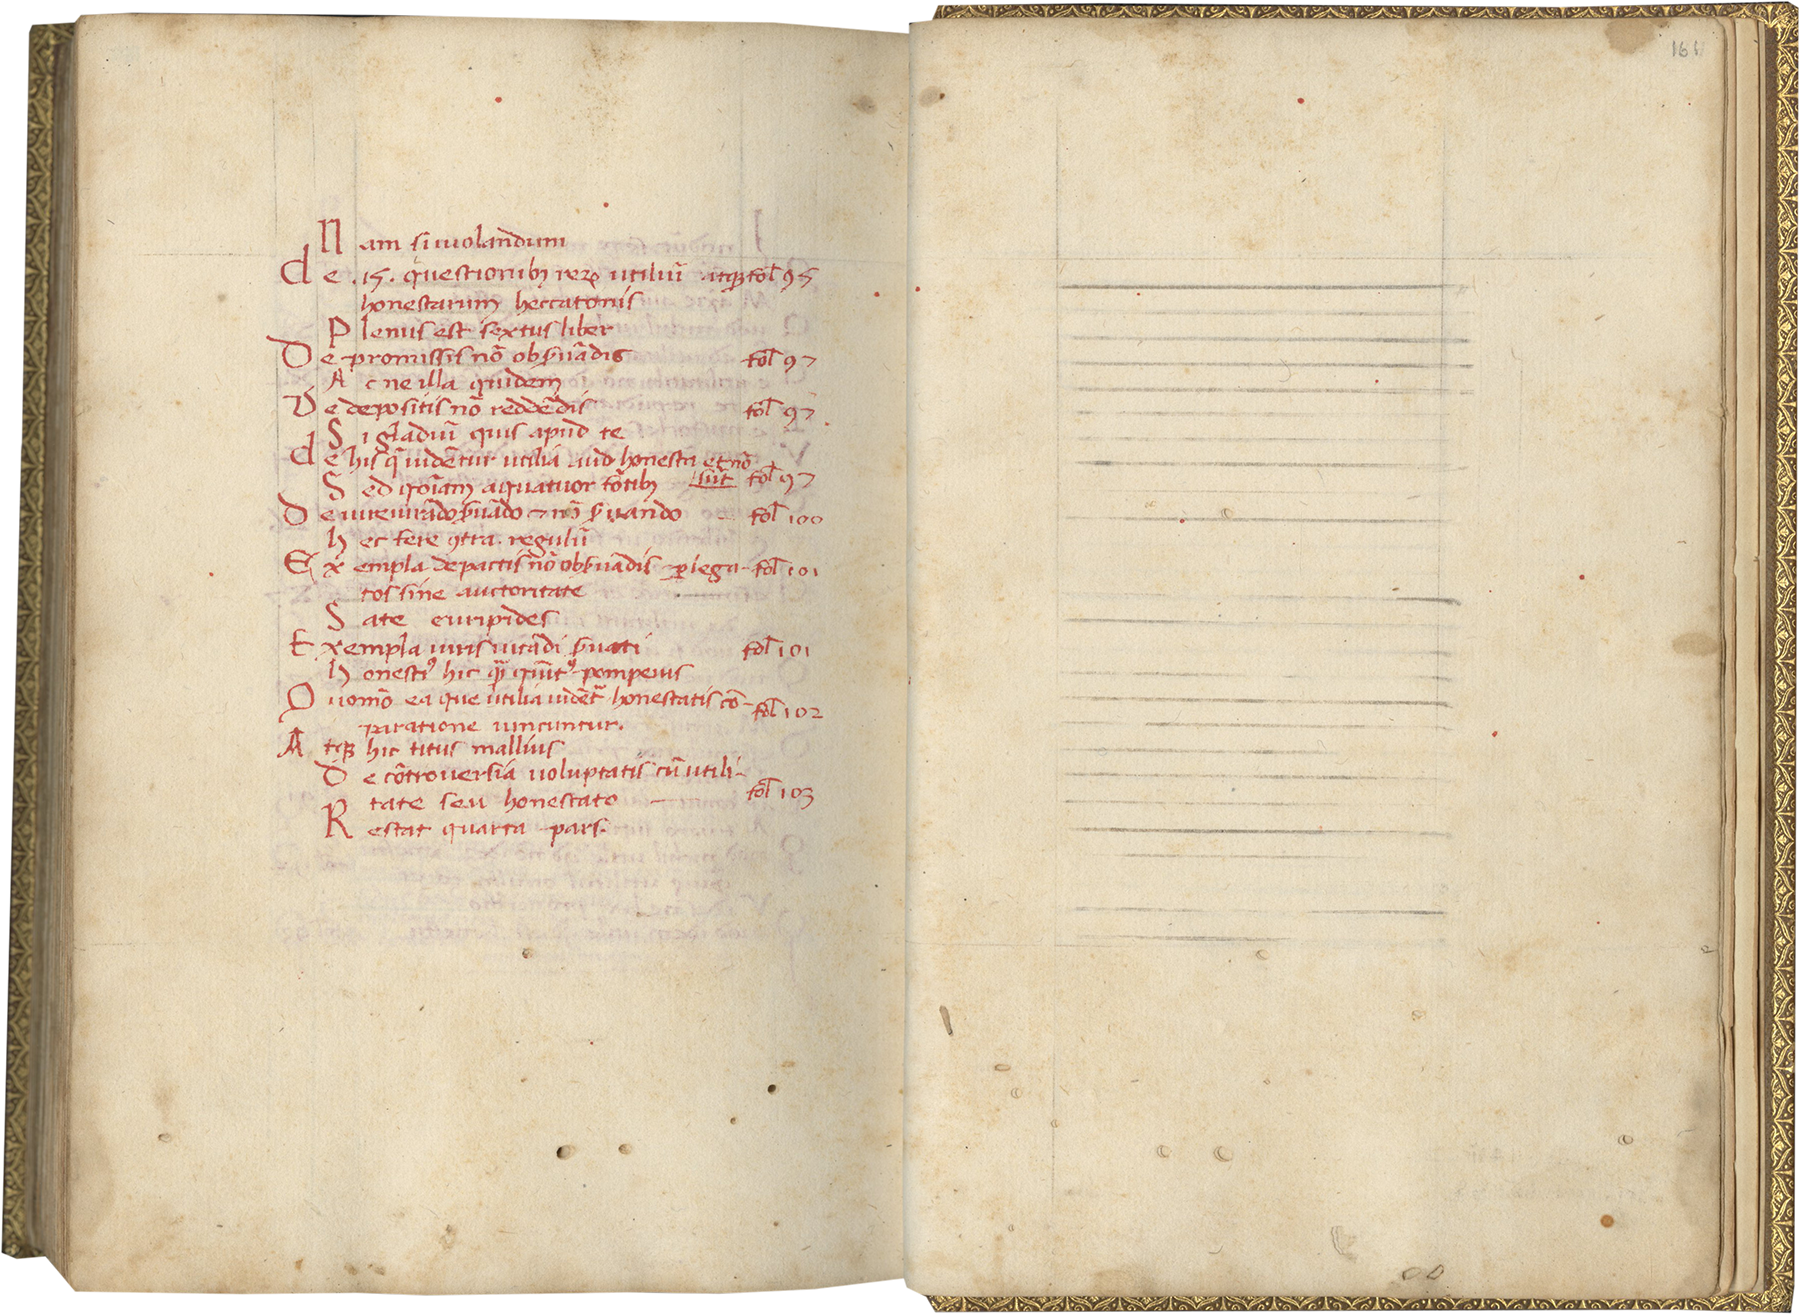 Nam si uiolandum
de .15. questionibꝫ reꝝ utiliũ atqꝫ fol 95
honestarum heccatonis
Plenus est sextus liber
De promissis nõ obẜuãdis fol 97
Ac ne illa quidem
De depositis nõ reddẽdis fol 97
Si gladiũ quis apud te
de his q̃ uidẽtur utilia aud honesta et nõ
sũt fol 97
Sed qõiam a quatuor fõtibꝫ
De iureiurãdo ẜuãdo ⁊ nõ ẜuando fol 100
hec fere ꝯtra regulũ
Exempla de pactis nõ obẜuãdis ꝑ lega- fol 101
tos sine auctoritate
Sate euripides
Exempla iuris iurãdi ẜuati fol 101
honestiꝰ hic q̃ qũitꝰ pompeius
Quomõ ea que utilia uidẽt̃ honestatis cõ- fol 102
paratione uincuntur.
Atqꝫ hic titus mallius
De cõtrouersia uoluptatis cũ utili-
tate seu honestate fol 103
Restat quarta pars.
161